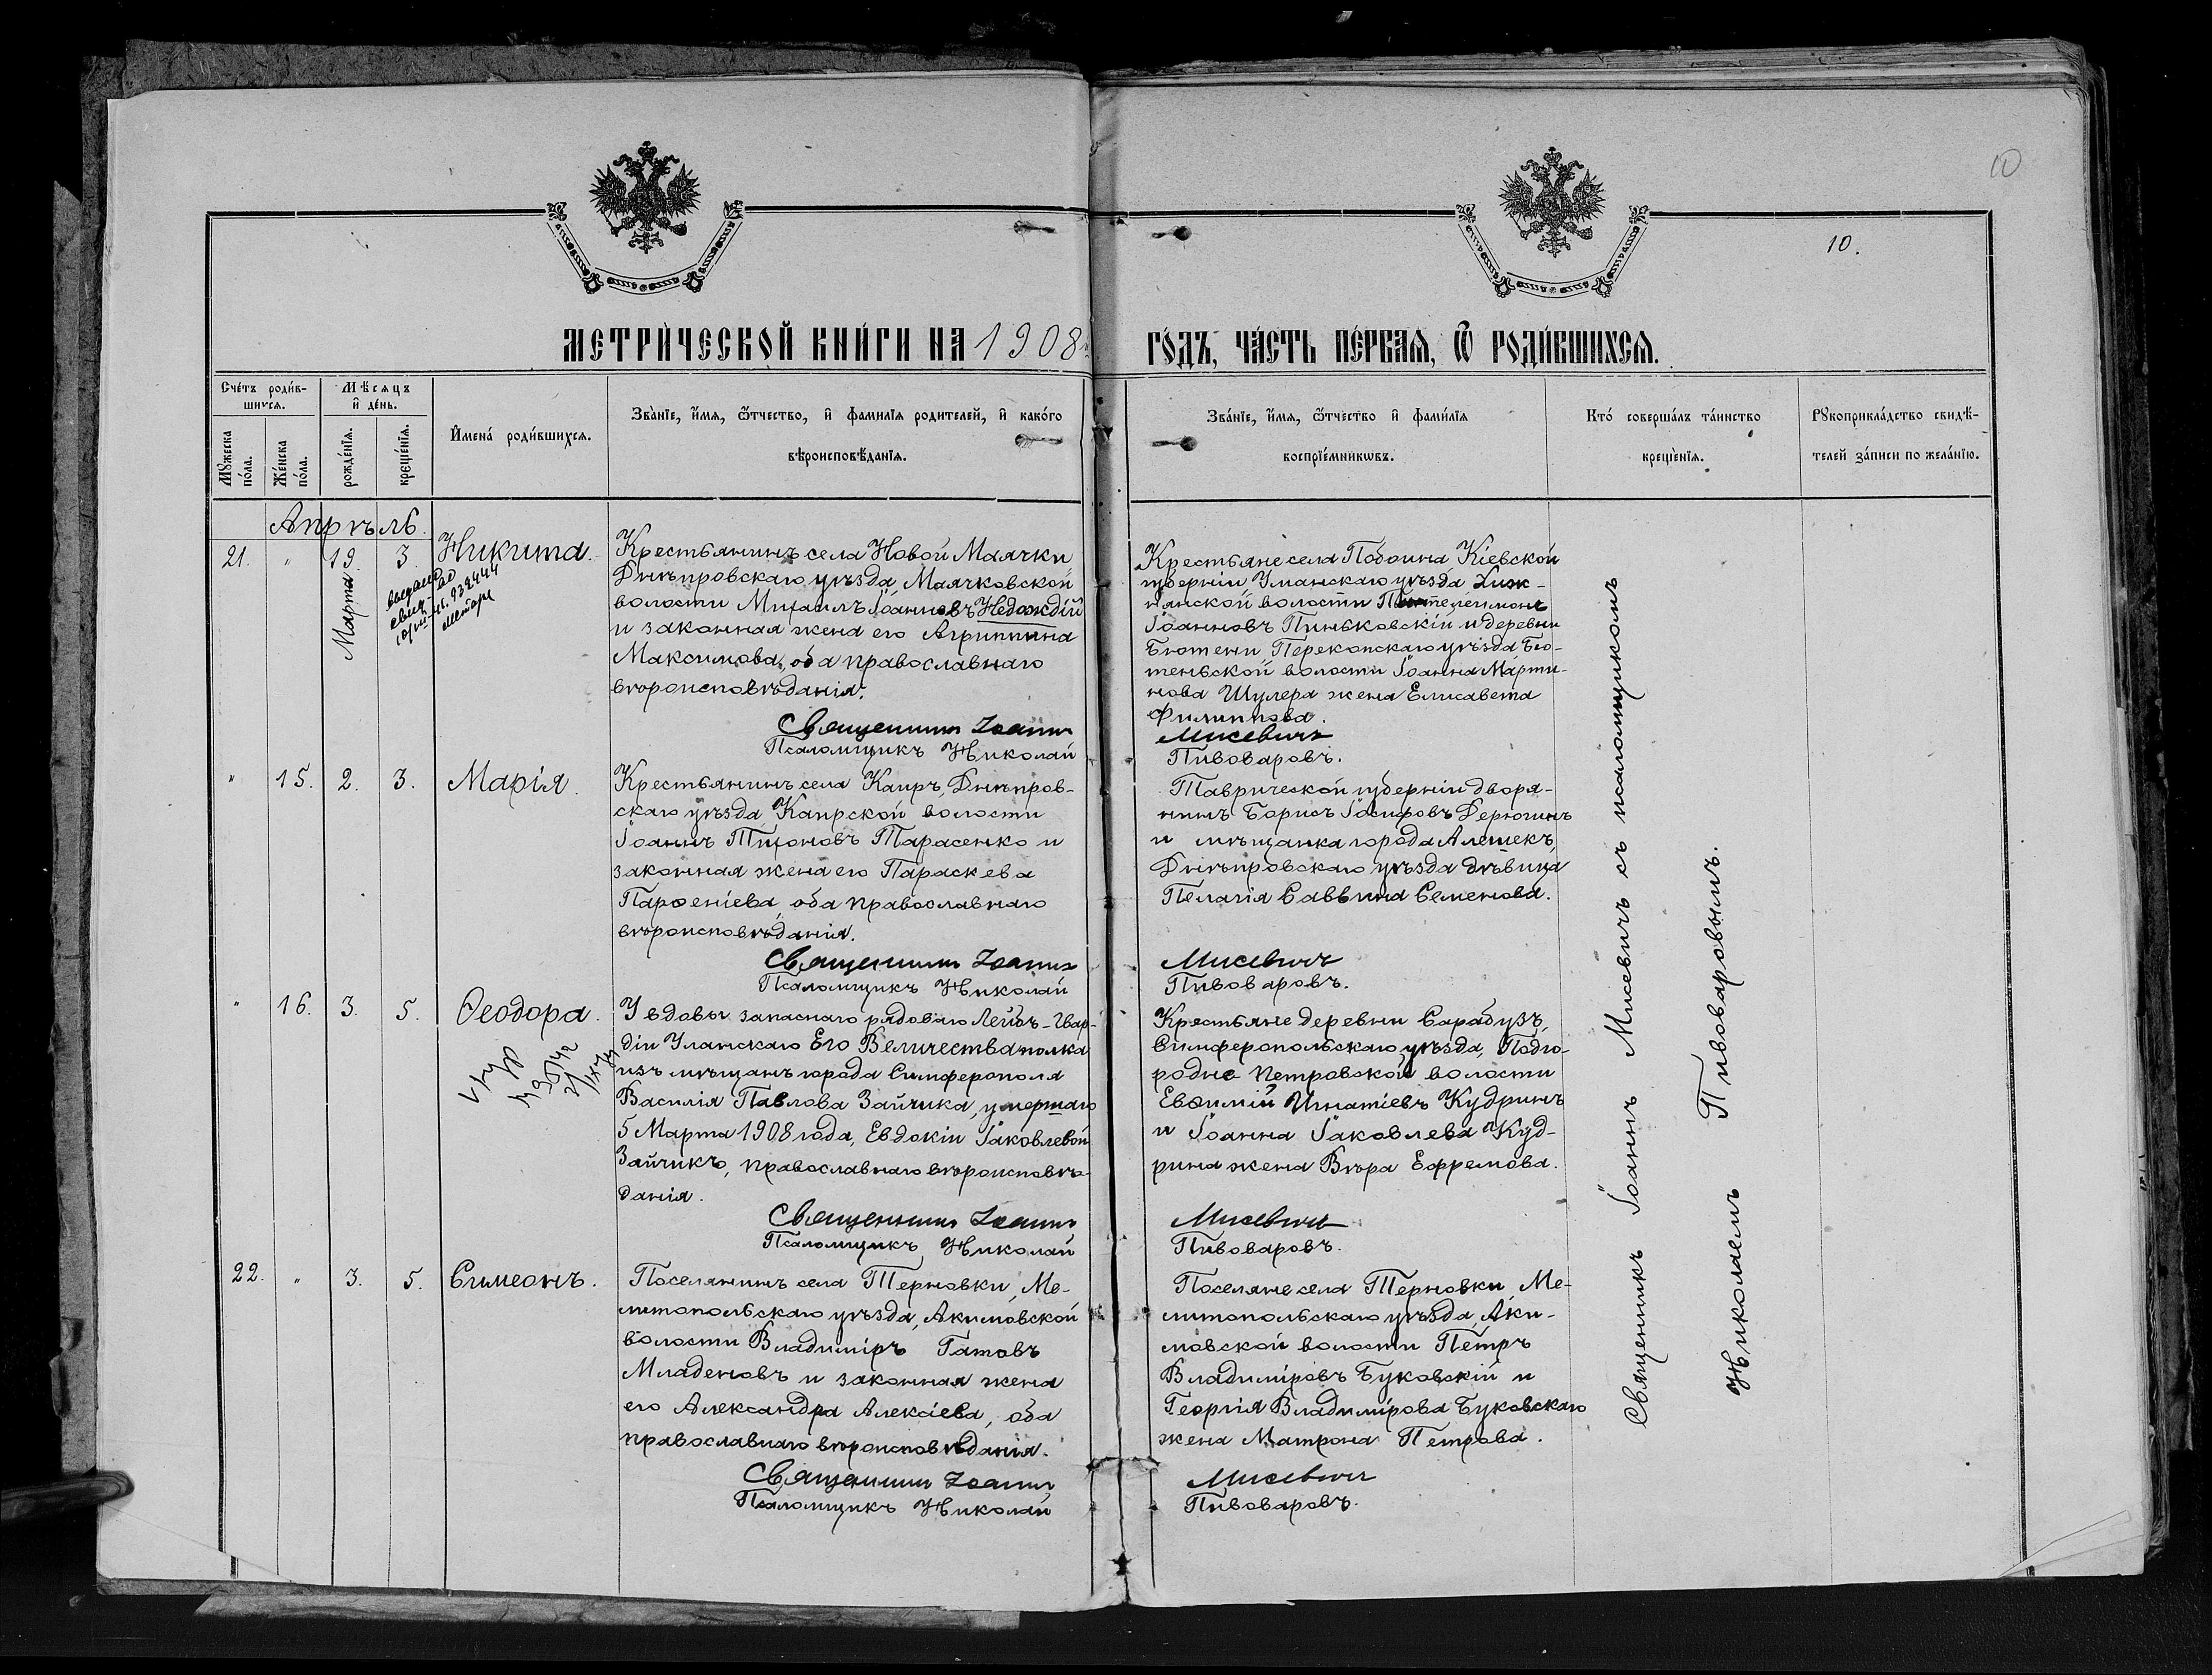 10
10.
МЕТРИ́ЧЕСКОЙ КНИ́ГИ НА 1908 ГО́ДЪ, ЧА́СТЬ ПЕ́РВАЯ, Ѿ РОДИ́ВШИХСЯ.
Сче́тъ роди́в-
шихся.
Мѣсяцъ
и҆ де́нь.
Мꙋжеска по́ла.
Же́нска по́ла.
рожде́нїя.
креще́нїя.
И҆мена́ роди́вшихся.
Зва́нїе, и҆́мя, ѻ҆́тчество, и҆ фамилїя родителей, и҆ како́го
вѣроисповѣ́данїя.
Зва́нїе, и҆́мя, ѻ҆́тчество и҆ фами́лїя
воспрїе́мникѡвъ.
Кто́ соверша́лъ та́инство
креще́нїя.
Рꙋкоприкла́дство свидѣ́-
телей за́писи по жела́нїю.
Апрѣль
21. " 19 Марта 3. Никита.
Крестьянинъ села Новой Маячки
Днѣпровскаго уѣзда, Маячковской
волости Михаилъ Іоанновъ Недождій
и законная жена его Агриппина
Максимова, оба православнаго
вѣроисповѣданія.
Священникъ Іоаннъ
Псаломщикъ Николай
Крестьяне села Побоина Кіевской
губерніи Уманскаго уѣзда Хиж-
нянской волости Пантелеимонъ
Іоанновъ Пиньковскій и деревни
Бютени Перекопскаго уѣзда Бю-
теньской волости Іоанна Марти-
нова Шулера жена Елисавета
Филиппова.
Мисевичъ
Пивоваровъ.
" 15. 2. 3. Марія.
Крестьянинъ села Каиръ, Днѣпров-
скаго уѣзда, Каирской волости
Іоаннъ Тихоновъ Тарасенко и
законная жена его Параскева
Парѳеніева, оба православнаго
вѣроисповѣданія.
Священникъ Іоаннъ
Псаломщикъ Николай
Таврической губерніи дворя-
нинъ Борисъ Іосифовъ Дерюгинъ
и мѣщанка города Алешекъ,
Днѣпровскаго уѣзда дѣвица
Пелагія Саввина Семенова.
Мисевичъ
Пивоваровъ.
" 16. 3. 5. Ѳеодора.
У вдовы запаснаго рядоваго Лейбъ-Гвар-
діи Уланскаго Его Величества полка
изъ мѣщанъ города Симферополя
Василія Павлова Зайчика, умершаго
5 Марта 1908 года, Евдокіи Іаковлевой
Зайчикъ, православнаго вѣроисповѣ-
данія.
Священникъ Іоаннъ
Псаломщикъ Николай
Крестьяне деревни Сарабузъ,
Симферопольскаго уѣзда, Подго-
родне Петровской волости
Евѳимій Игнатіевъ Кудринъ
и Іоанна Іаковлева Куд-
рина жена Вѣра Ефремова.
Мисевичъ
Пивоваровъ.
22. " 3. 5. Симеонъ.
Поселянинъ села Терновки, Ме-
литопольскаго уѣзда, Акимовской
волости Владиміръ Гатовъ
Младеновъ и законная жена
его Александра Алексіева, оба
православнаго вѣроисповѣданія.
Священникъ Іоаннъ
Псаломщикъ Николай
Поселяне села Терновки, Ме-
литопольскаго уѣзда, Аки-
мовской волости Петръ
Владиміровъ Буковскій и
Георгія Владимірова Буковскаго
жена Матрона Петрова.
Мисевичъ
Пивоваровъ.
Священникъ Іоаннъ Мисевичъ съ псаломщикомъ
Николаемъ Пивоваровымъ.